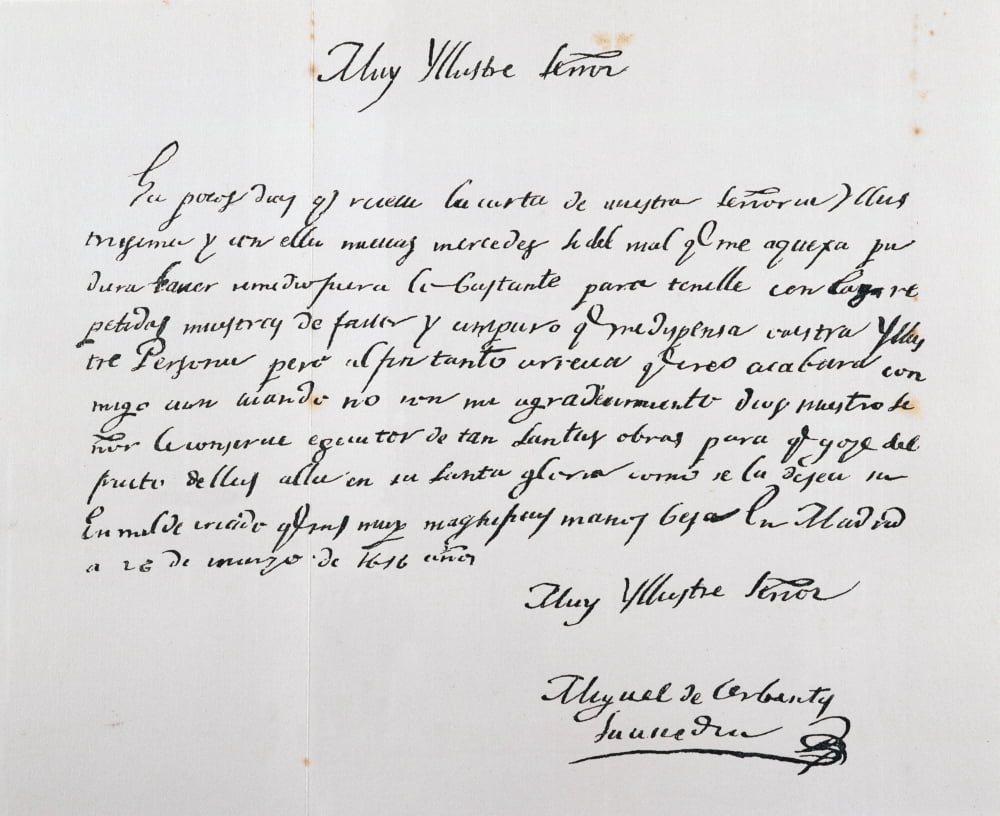 Muy Yllustre señor
Ha pocos dias q̃ reciui la carta de vuestra señoria Yllus
trisima y con ella nueuas mercedes si del mal q̃ me aquexa pu
diera hauer remedio fuera lo bastante para tenelle con las re
petidas muestras de fauor y amparo q̃ me dispensa vuestra Yllus
tre Persona pero al fin tanto arrecia q̃ creo acabara con
migo aun cuando no con mi agradecimiento dios nuestro se
ñor le conserue egecutor de tan santas obras para q̃ goze del
fruto dellas alla en su santa gloria como se la desea su
humilde criado q̃ sus muy magnificas manos besa En Madrid
a 26 de marzo de 1616 años
Muy Yllustre señor
Miguel de Cerbantes
Saauedra